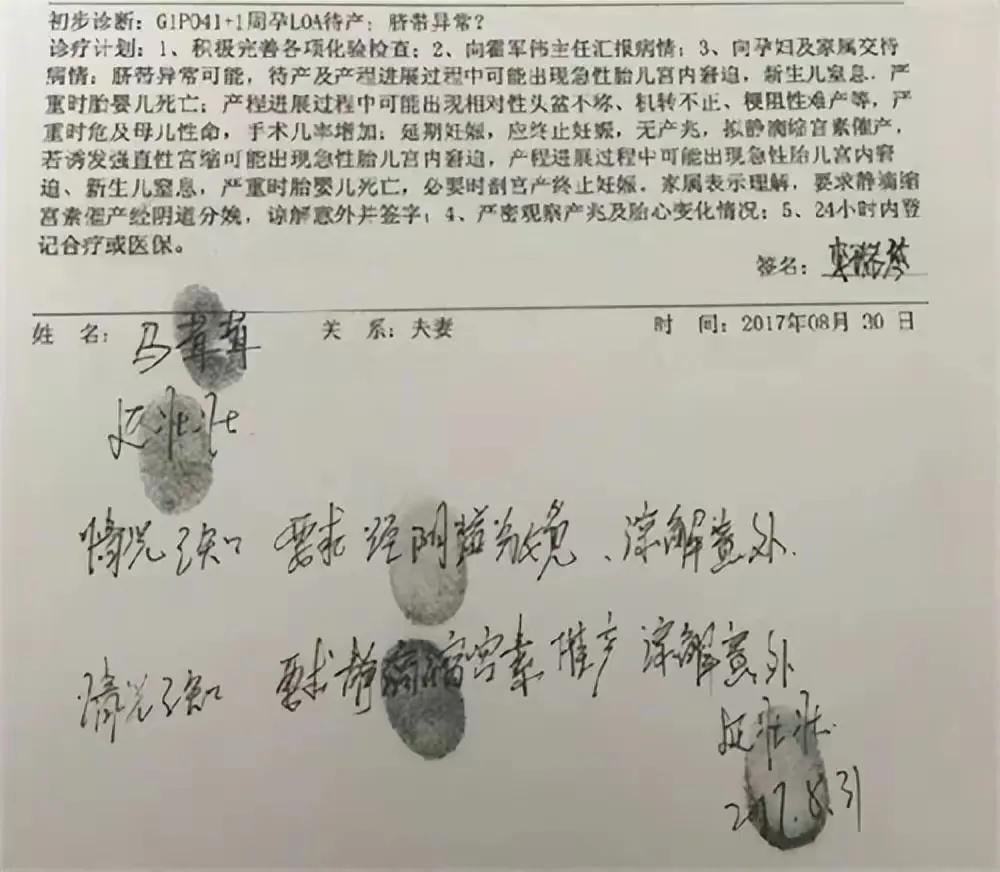 初步诊断：G1P041+1周孕LOA待产；脐带异常？
诊疗计划：1、积极完善各项化验检查；2、向霍军伟主任汇报病情；3、向孕妇及家属交待
病情：脐带异常可能，待产及产程进展过程中可能出现急性胎儿宫内窘迫，新生儿窒息．严
重时胎婴儿死亡；产程进展过程中可能出现相对性头盆不称、机转不正、梗阻性难产等，严
重时危及母儿性命，手术几率增加；延期妊娠，应终止妊娠，无产兆，拟静滴缩宫素催产，
若诱发强直性宫缩可能出现急性胎儿宫内窘迫，产程进展过程中可能出现急性胎儿宫内窘
迫、新生儿窒息，严重时胎婴儿死亡，必要时剖宫产终止妊娠．家属表示理解，要求静滴缩
宫素催产经阴道分娩，谅解意外并签字；4、严密观察产兆及胎心变化情况；5、24小时内登
记合疗或医保。
签名：
姓 名： 马茸茸 关 系：夫妻 时 间：2017年08月 30 日
延壮壮
情况已知 要求经阴道分娩、谅解意外．
情况已知 要求静滴缩宫素催产 谅解意外
延壮壮
2017.8.31